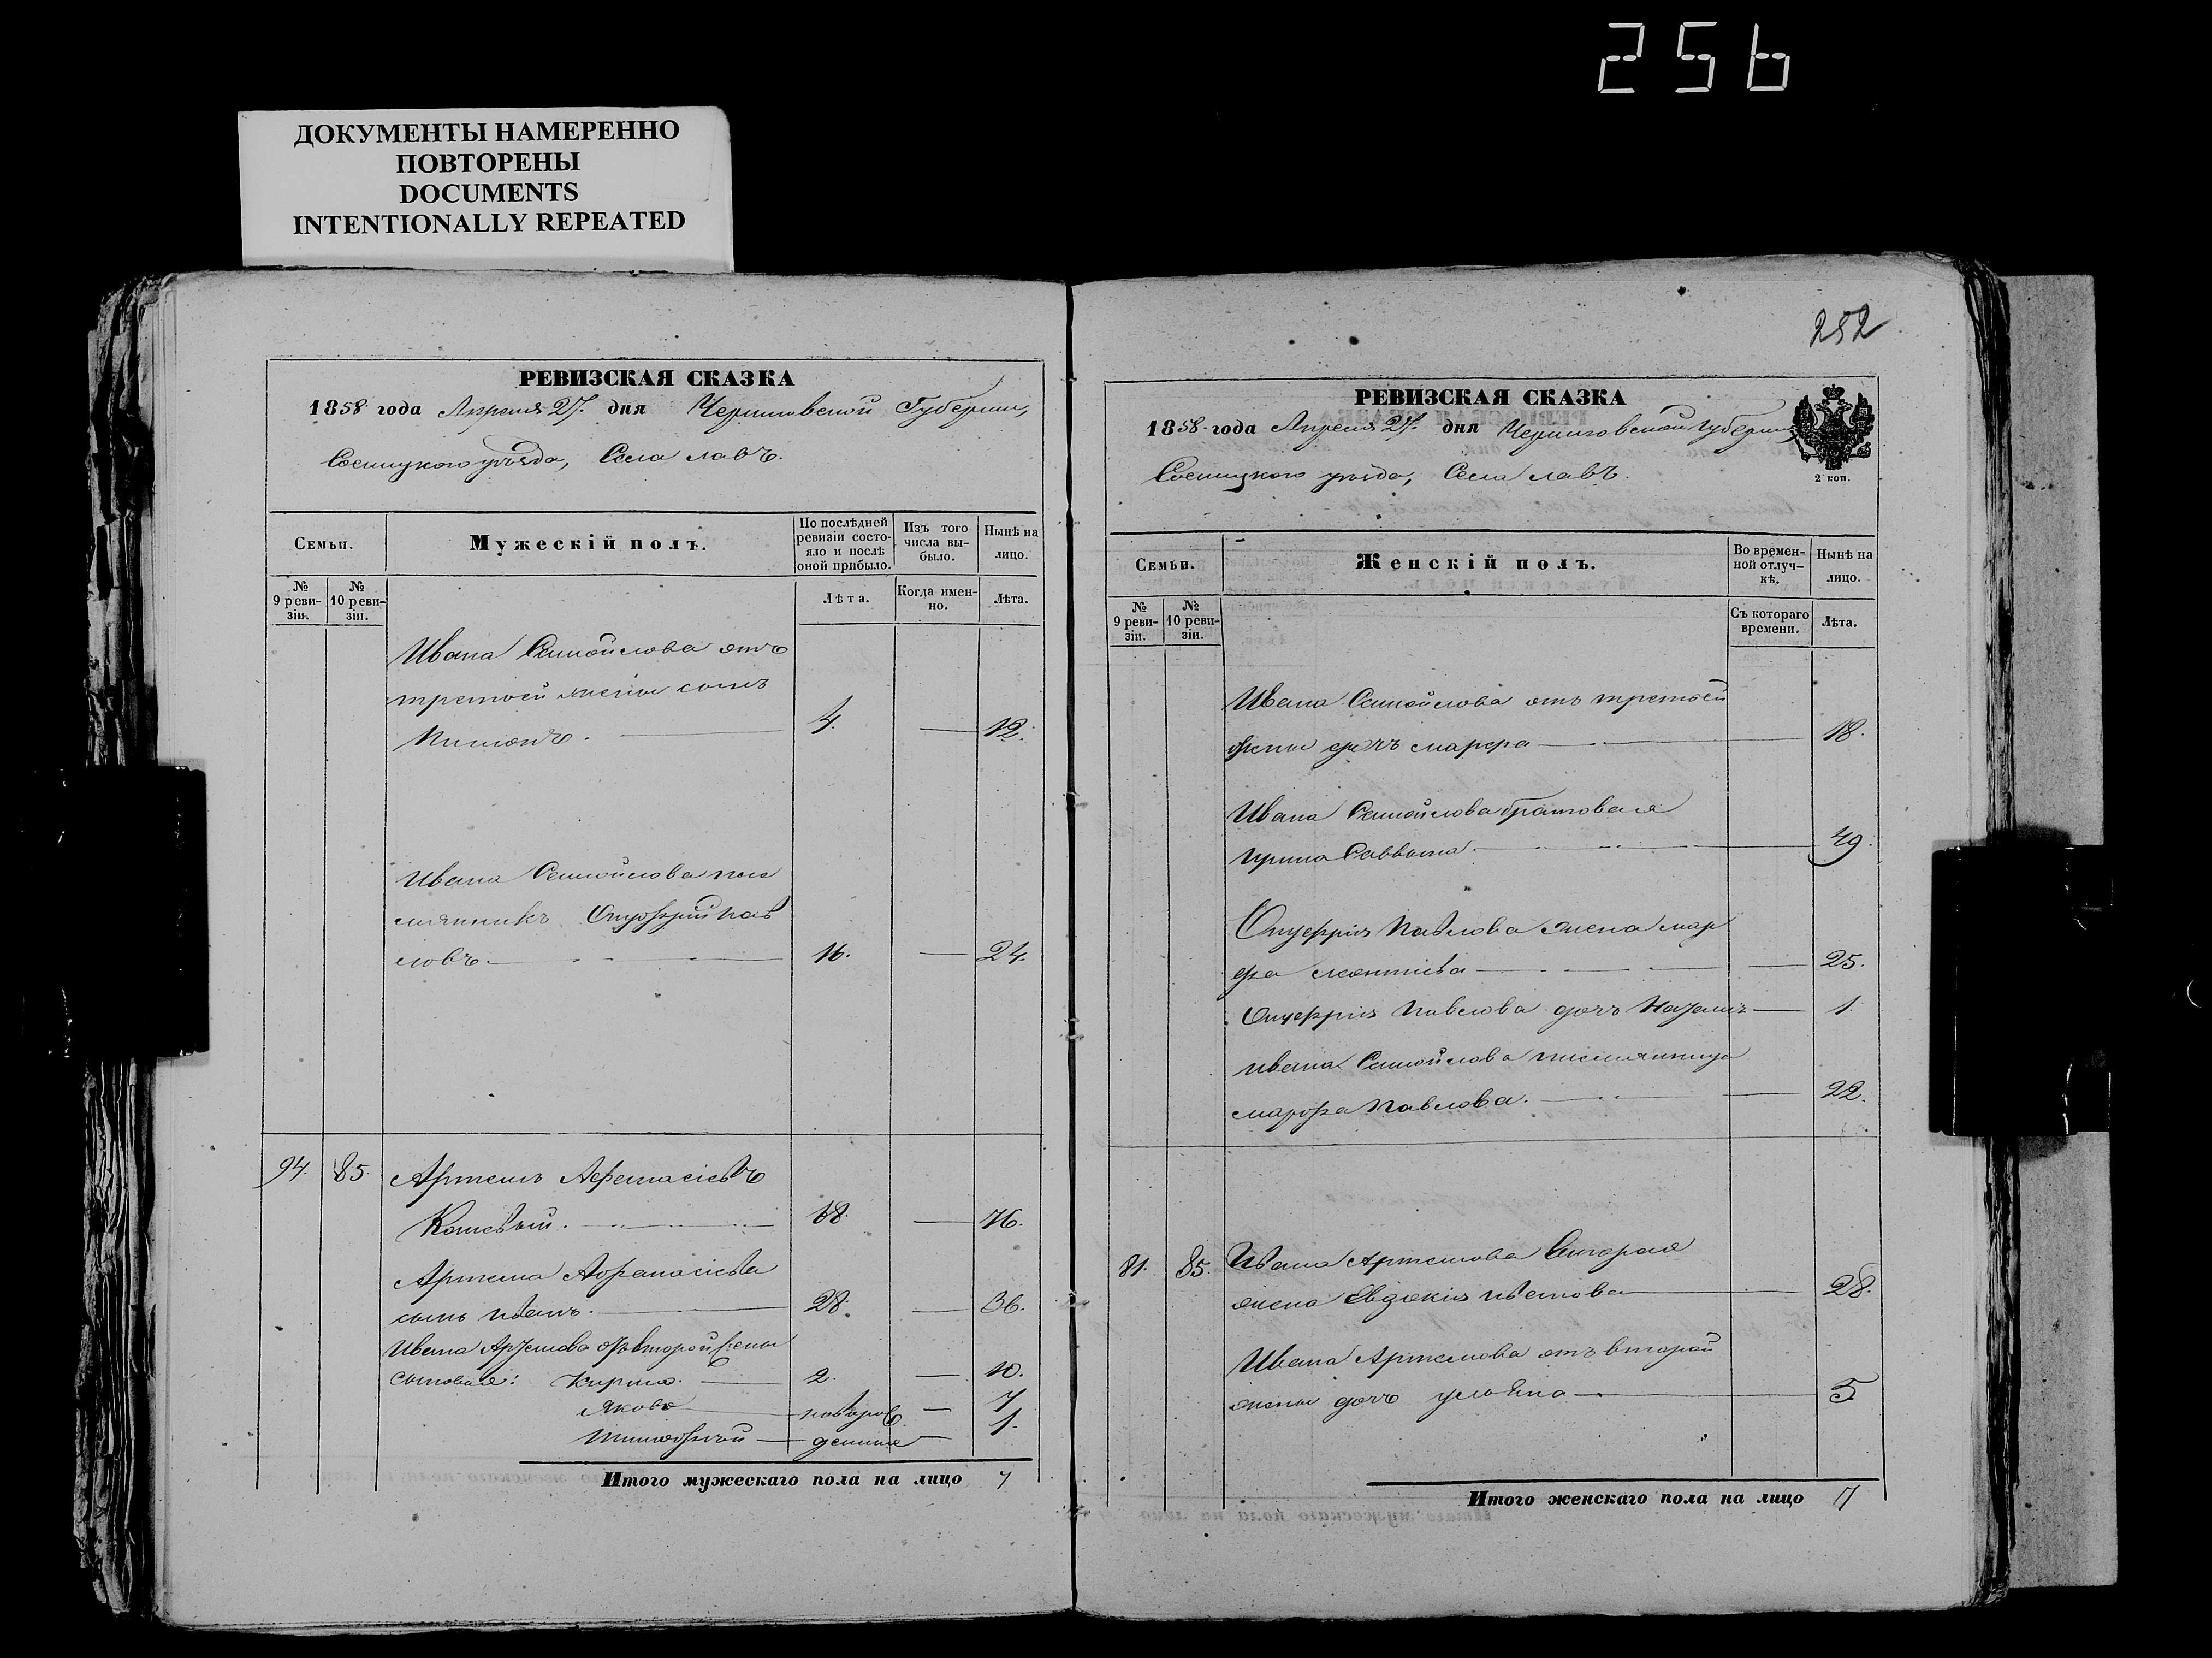 256
ДОКУМЕНТЫ НАМЕРЕННО
ПОВТОРЕНЫ
DOCUMENTS
INTENTIONALLY REPEATED
РЕВИЗСКАЯ СКАЗКА
1858 года Апреля 27. дня Черниговской Губернии,
Сосницкого уѣзда, Села лавъ.
Семьи.
Мужескій полъ.
По послѣдней ревизіи состояло и послѣ оной прибыло.
Изъ того числа выбыло.
Нынѣ на лицо.
№ 9 ревизіи.
№ 10 ревизіи.
Лѣта.
Когда именно.
Лѣта.
Ивана Самойлова отъ
третьей жены сынъ
Пименъ. 4. — 12.
Ивана Самойлова пле
мянникъ Онуфрій пав
ловъ — 16. — 24.
94. 85. Артемъ Афанасіевъ
Кошевый. — 68. — 76.
Артема Афанасіева
сынъ иванъ. — 28. — 36.
Ивана Артемова отъ второй жены
сыновья: Кирило. — 2. — 10.
Яковъ — новорож — 7
Тимофей — денные — 1.
Итого мужескаго пола на лицо 7
252
РЕВИЗСКАЯ СКАЗКА
1858 года Апреля 27. дня Черниговской Губерніи
Сосницкого уѣзда, Села лавъ.
2 коп.
Семьи.
Женскій полъ.
Во временной отлучкѣ.
Нынѣ на лицо.
№ 9 ревизіи.
№ 10 ревизіи.
Съ котораго времени.
Лѣта.
Ивана Самойлова отъ третьей
жены дочь марфа — 18.
Ивана Самойлова братовая
Ирина Саввина — 49.
Онуфрія Павлова жена мар
фа — 25.
Онуфрія Павлова дочь — 1
ивана Самойлова племянница
марфа Павлова. — 22.
81. 85. Ивана Артемова вторая
жена Евдокія иванова — 28.
Ивана Артемова отъ второй
жены дочь ульяна — 5
Итого женскаго пола на лицо 7